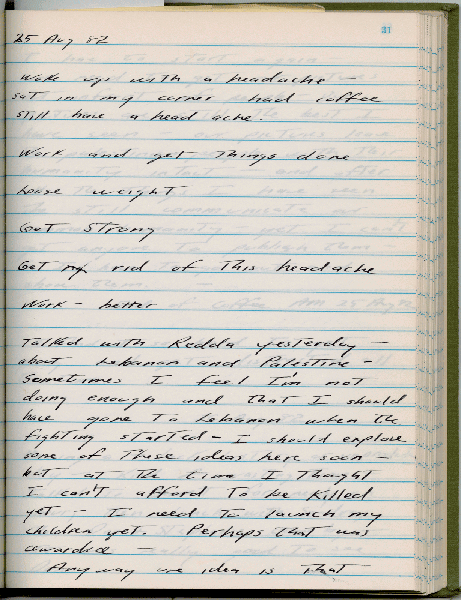 31
25 Aug 82
Woke up with a headache -
sat in my corner had coffee
still have a head ache.
Work and get things done
Loose weight
Get Strong
Get my rid of This headache
Work - better
Talked with Kedda yesterday -
about Lebanon and Palestine -
Sometimes I feel I'm not
doing enough and that I should
have gone To Lebanon when the
fighting started - I should explore
some of these ideas here soon -
but at the time I Thought
I can't afford To be killed
yet - I need To launch my
children yet. Perhaps that was
cowardice -
Anyway idea is That